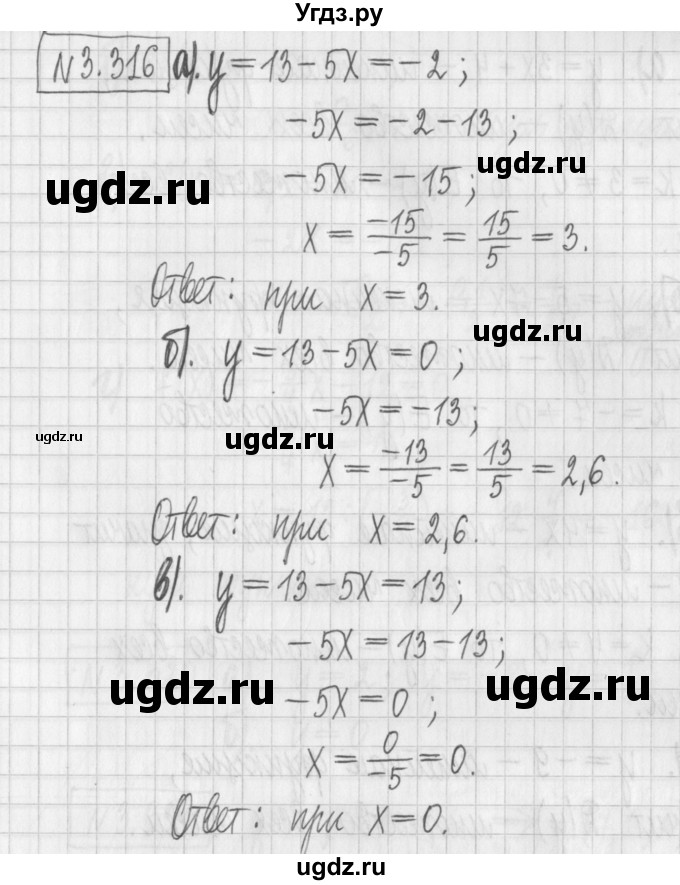 Угдз.ру
№3.316 а). y = 13 - 5x = -2 ;
-5x = -2 - 13 ;
ugdz.ru
-5x = -15 ;
ugdz.ru
x = -15/-5 = 15/5 = 3.
Ответ: при x = 3.
ugdz.ru
б). y = 13 - 5x = 0 ;
-5x = -13 ;
ugdz.ru
ugdz.ru
x = -13/-5 = 13/5 = 2,6.
Ответ: при x = 2,6.
в). y = 13 - 5x = 13 ;
-5x = 13 - 13 ;
ugdz.ru
ugdz.ru
-5x = 0 ;
x = 0/-5 = 0.
Ответ: при x = 0.
ugdz.ru